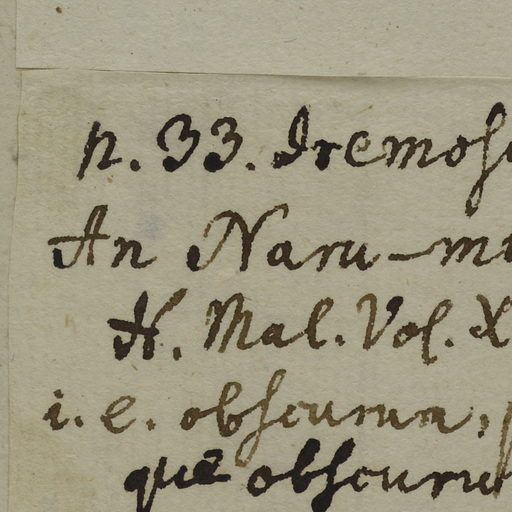 n. 33. Iremos
An Naru-m
H. Mal. Vol. X
i. e. obscurum,
que obscuru